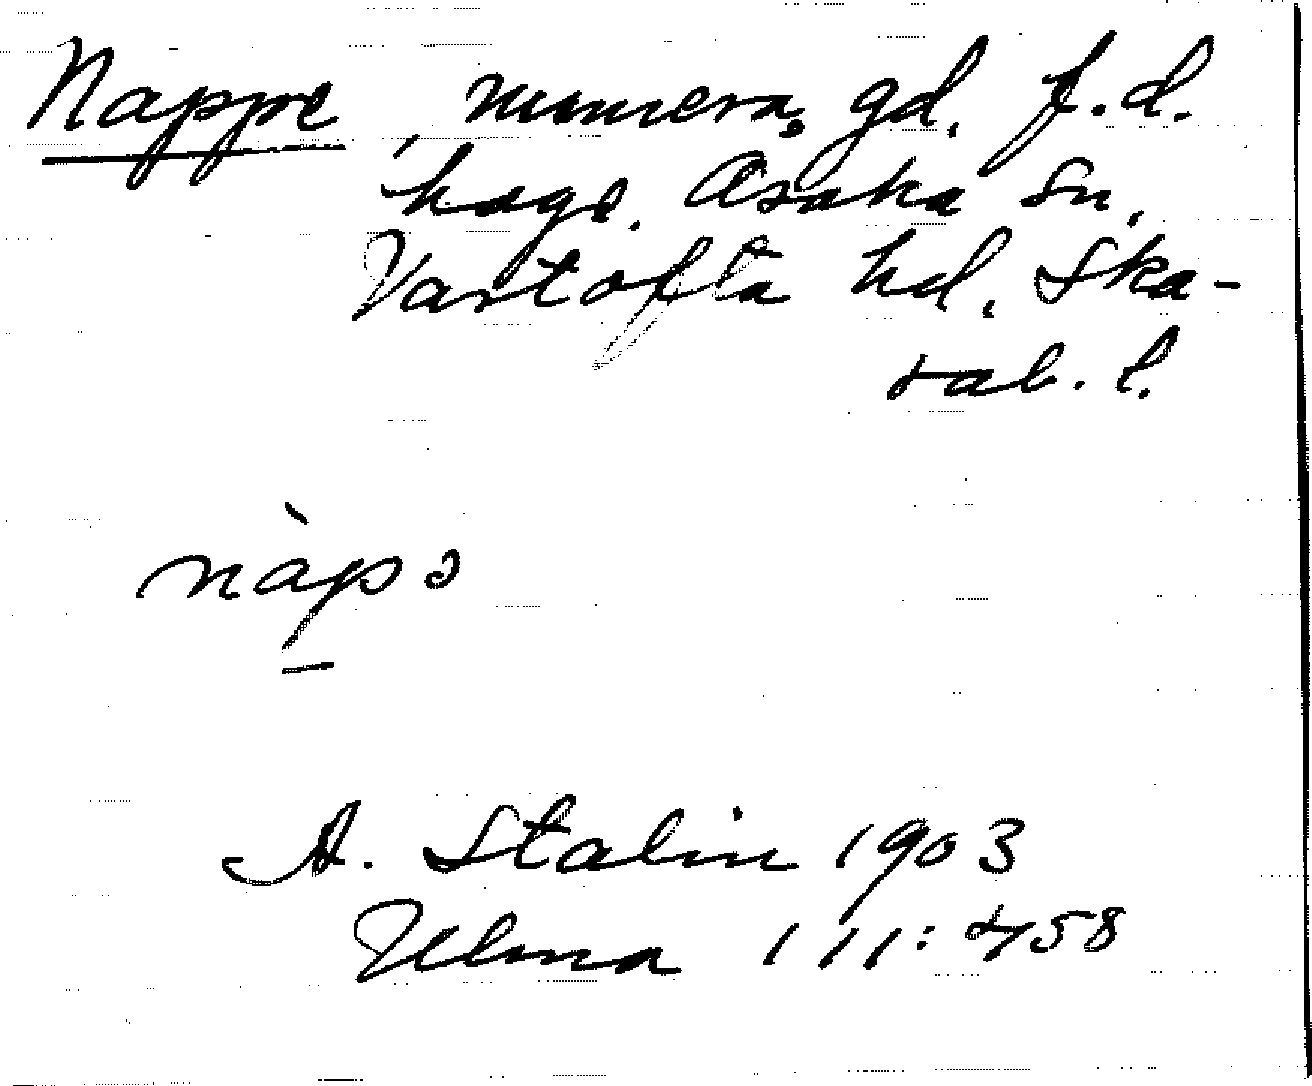 Nappe, numera gd. f.d.
hage. Åsaka sn,
Vartofta hd, Ska-
rab. l.
nàpə
A. Stalin 1903
Ulma 111:458